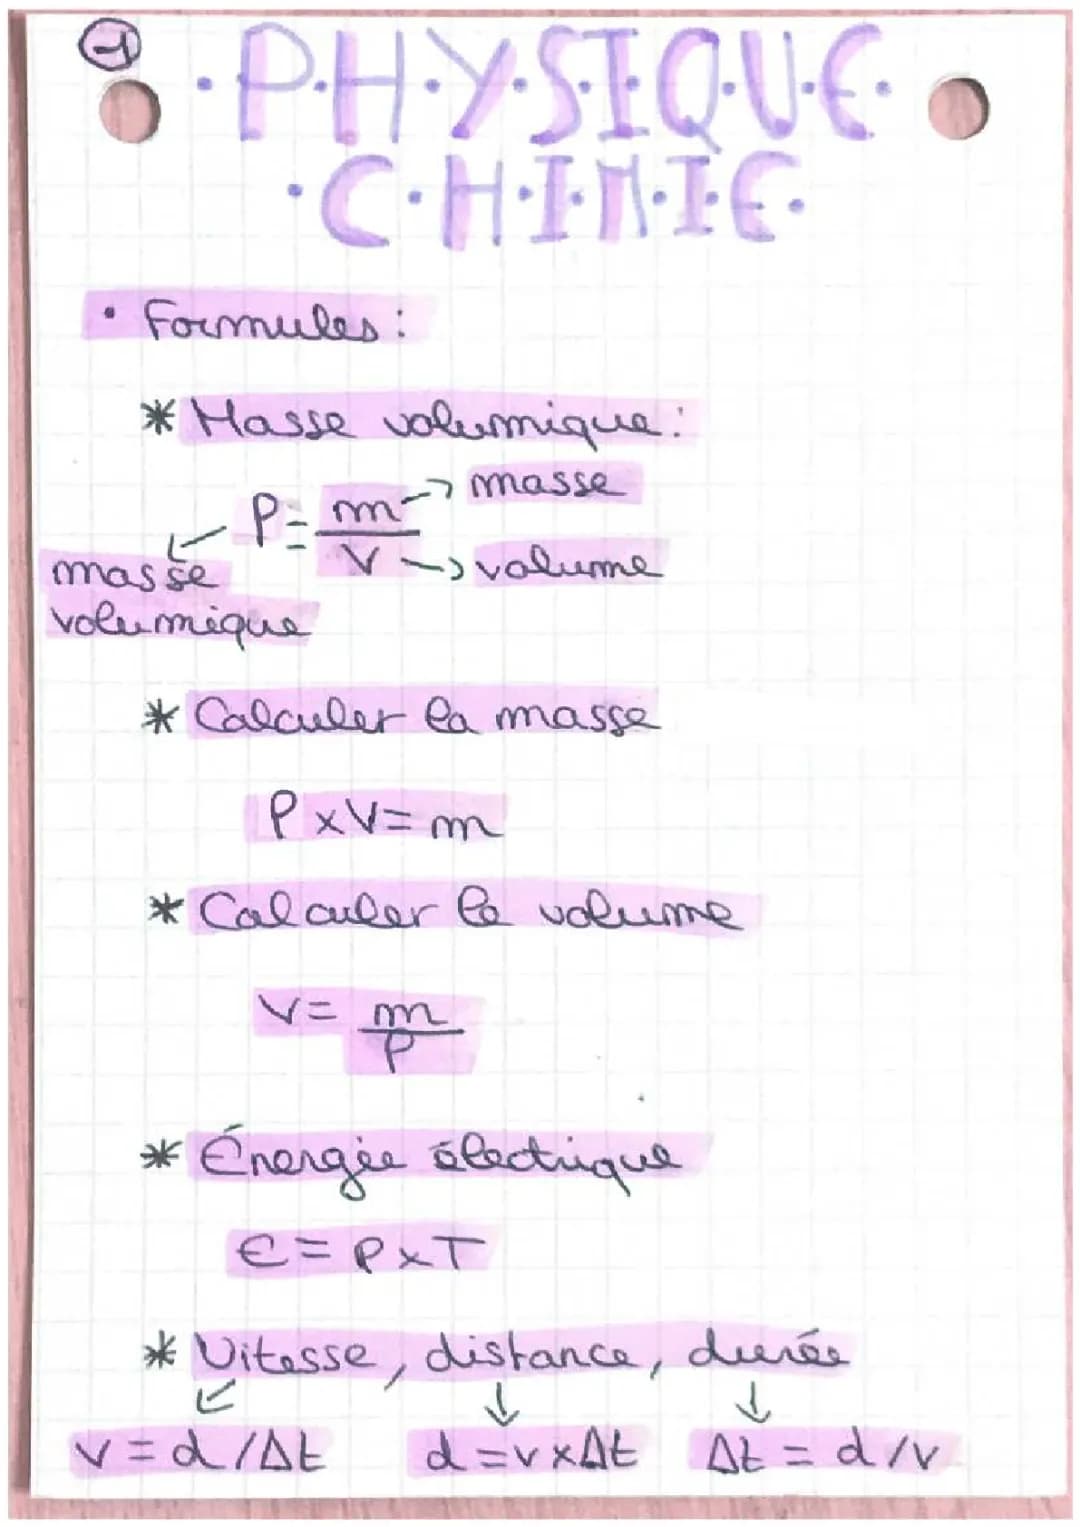 1
·P·H·Y·S·I·Q·U·E·
·C·H·I·M·I·E·
• Formules :
* Masse volumique :
P = m/V
masse
volume
masse
volumique
* Calculer la masse
P x V = m
* Calculer le volume
V = m/P
* Énergie électrique
E = P x T
* Vitesse, distance, durée
v = d / Δt   d = v x Δt   Δt = d / v